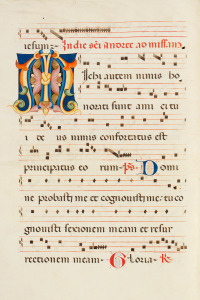 iesum:- In die sci andree ad missam
Michi autem nimis ho
norati sunt ami ci tu
i de us nimis confortatus est
principatus eo rum. ps. Domi
ne probasti me et cognouisti me: tu co
gnouisti sessionem meam et resur
rectionem meam. Gloria. R.